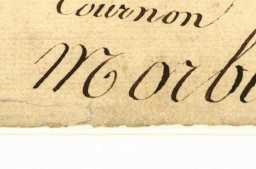 Tournon
Morb